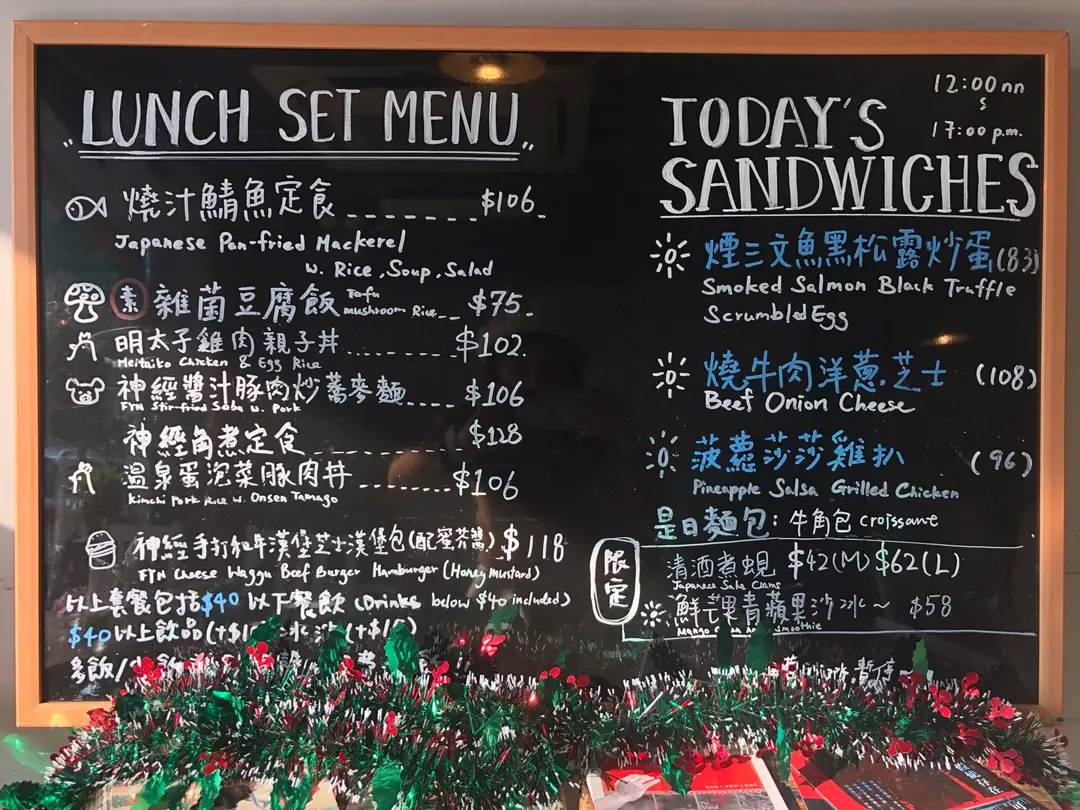 LUNCH SET MENU
燒汁鯖魚定食 $106
Japanese Pan-fried Mackerel
w. Rice, Soup, Salad
素 雜菌豆腐飯 Tofu mushroom Rice $75
明太子雞肉親子丼 $102
Meitaiko Chicken & Egg Rice
神經醬汁豚肉炒蕎麥麵 $106
FTN Stir-fried Soba w. Pork
神經角煮定食 $128
温泉蛋泡菜豚肉丼 $106
Kimchi Pork Rice w. Onsen Tamago
神經手打和牛漢堡芝士漢堡包(配蜜芥醬) $118
FTN Cheese Waggu Beef Burger Hamburger (Honey mustard)
以上套餐包括$40以下餐飲 (Drinks below $40 included)
$40以上飲品
多飯/少飯
TODAY'S SANDWICHES
12:00nn
17:00 p.m.
煙三文魚黑松露炒蛋 (83)
Smoked Salmon Black Truffle
Scrumbled Egg
燒牛肉洋蔥芝士 (108)
Beef Onion Cheese
菠蘿莎莎雞扒 (96)
Pineapple Salsa Grilled Chicken
是日麵包: 牛角包 croissant
限定
清酒煮蜆 $42(M) $62(L)
Japanese Sake Clams
鮮芒果青蘋果沙冰~ $58
Mango Smoothie